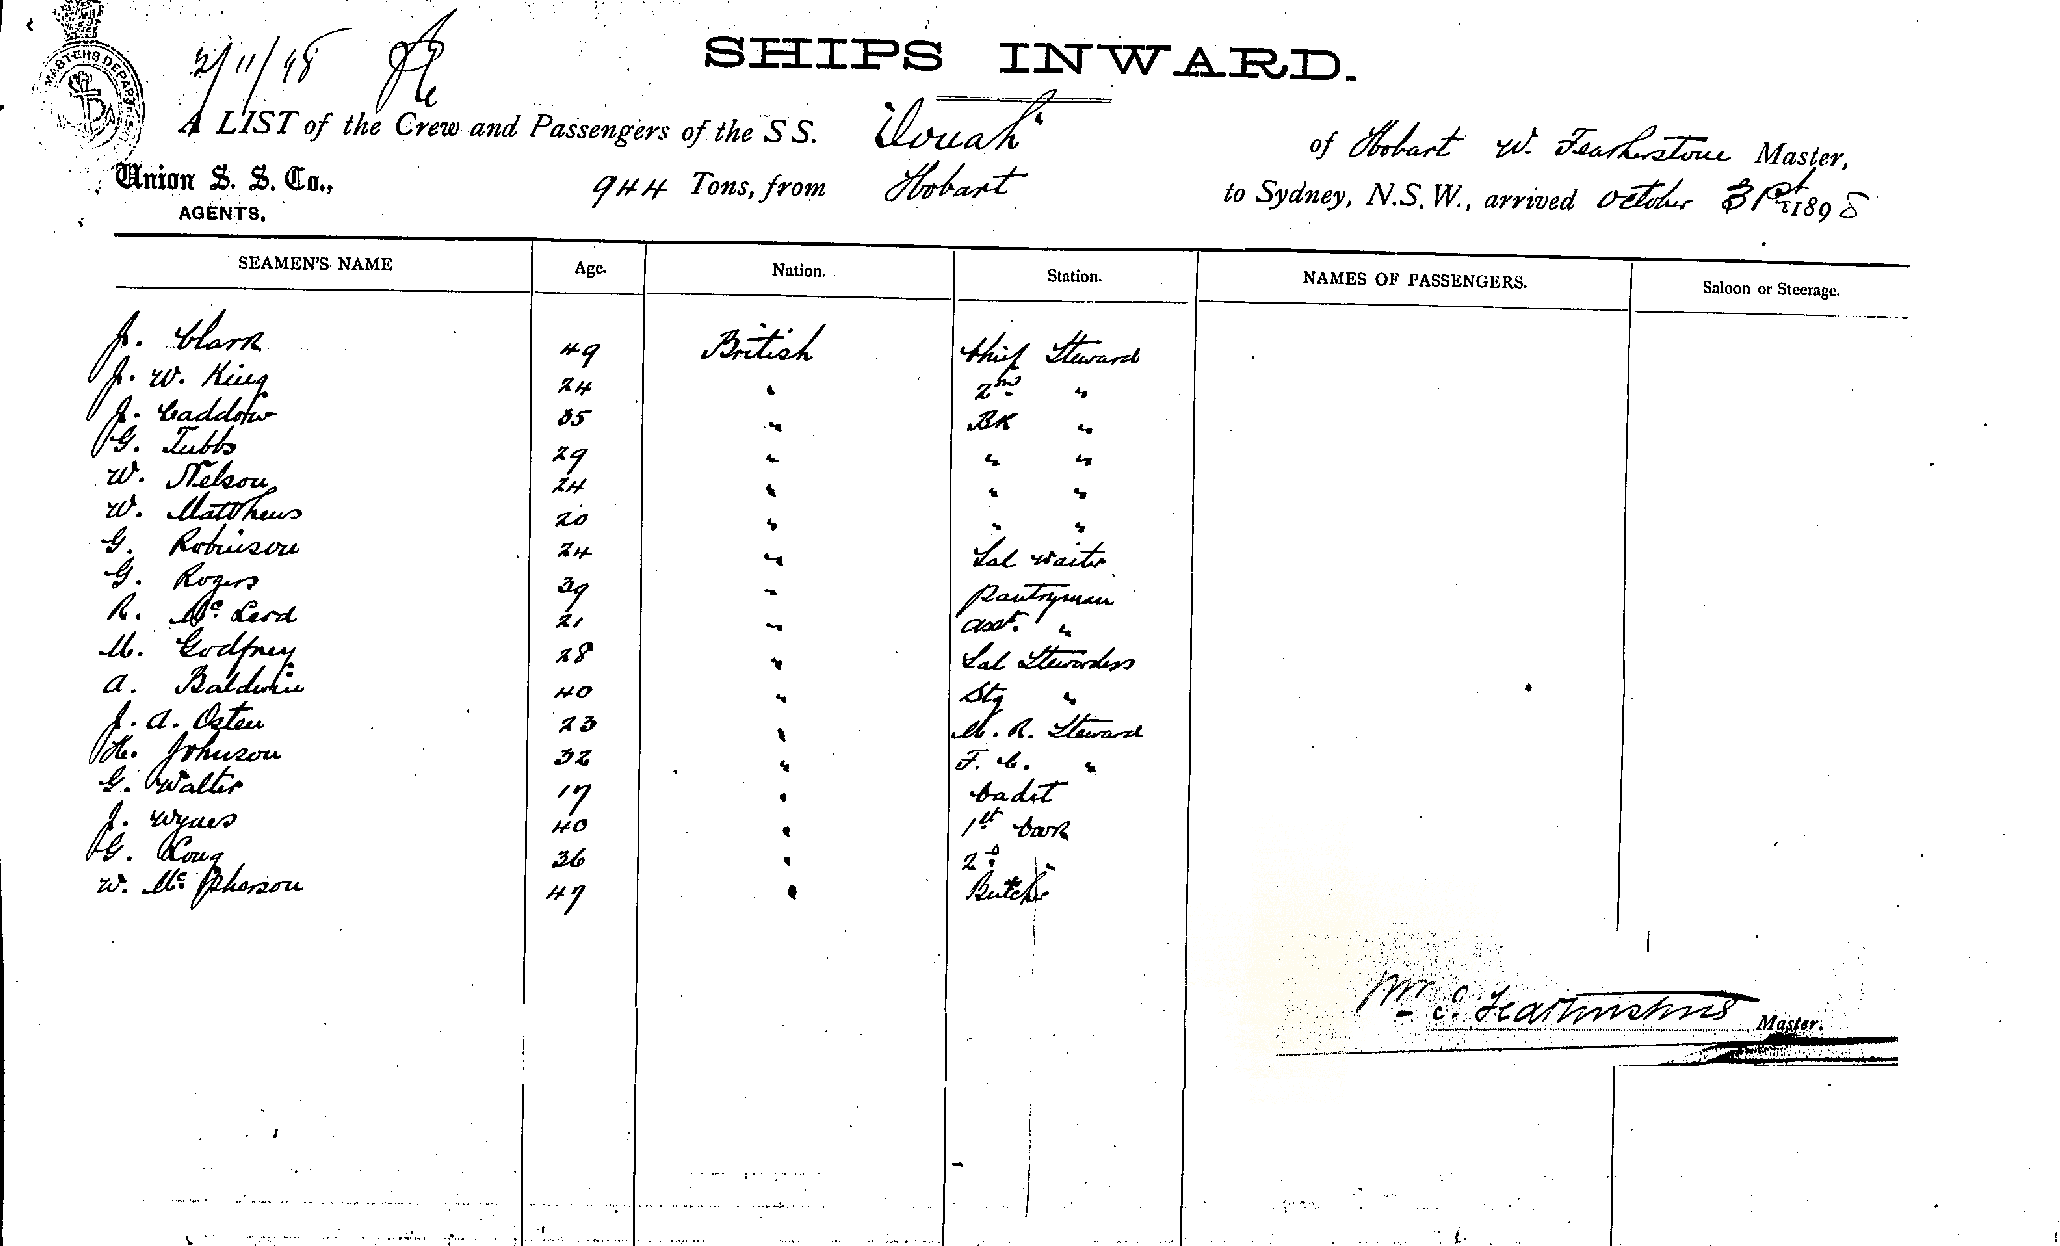 MASTERS DEPAR
2/11/98
SHIPS INWARD.
A LIST of the Crew and Passengers of the SS. "Oonah" of Hobart W. Featherstone Master,
Union S. S. Co., AGENTS. 944 Tons, from Hobart to Sydney, N.S.W., arrived October 31st 1898
SEAMEN'S NAME Age. Nation. Station. NAMES OF PASSENGERS. Saloon or Steerage.
J. Clark 49 British Chief Steward
J. W. King 24 " 2nd "
J. Caddow 35 " BK "
G. Tubbs 29 " " "
W. Nelson 24 " " "
W. Matthews 20 " " "
G. Robinson 24 " Sal Waiter
G. Rogers 39 " Pantryman
R. Mc Leod 21 " asst. "
M. Godfrey 28 " Sal Stewardess
A. Baldwin 40 " Stg "
J. A. Osten 23 " M. R. Steward
H. Johnson 32 " F. C. "
G. Walter 17 " Cadet
J. Wynes 40 " 1st Cook
G. Long 36 " 2d "
W. Mc Pherson 47 " Butcher
Wm Featherstone Master.